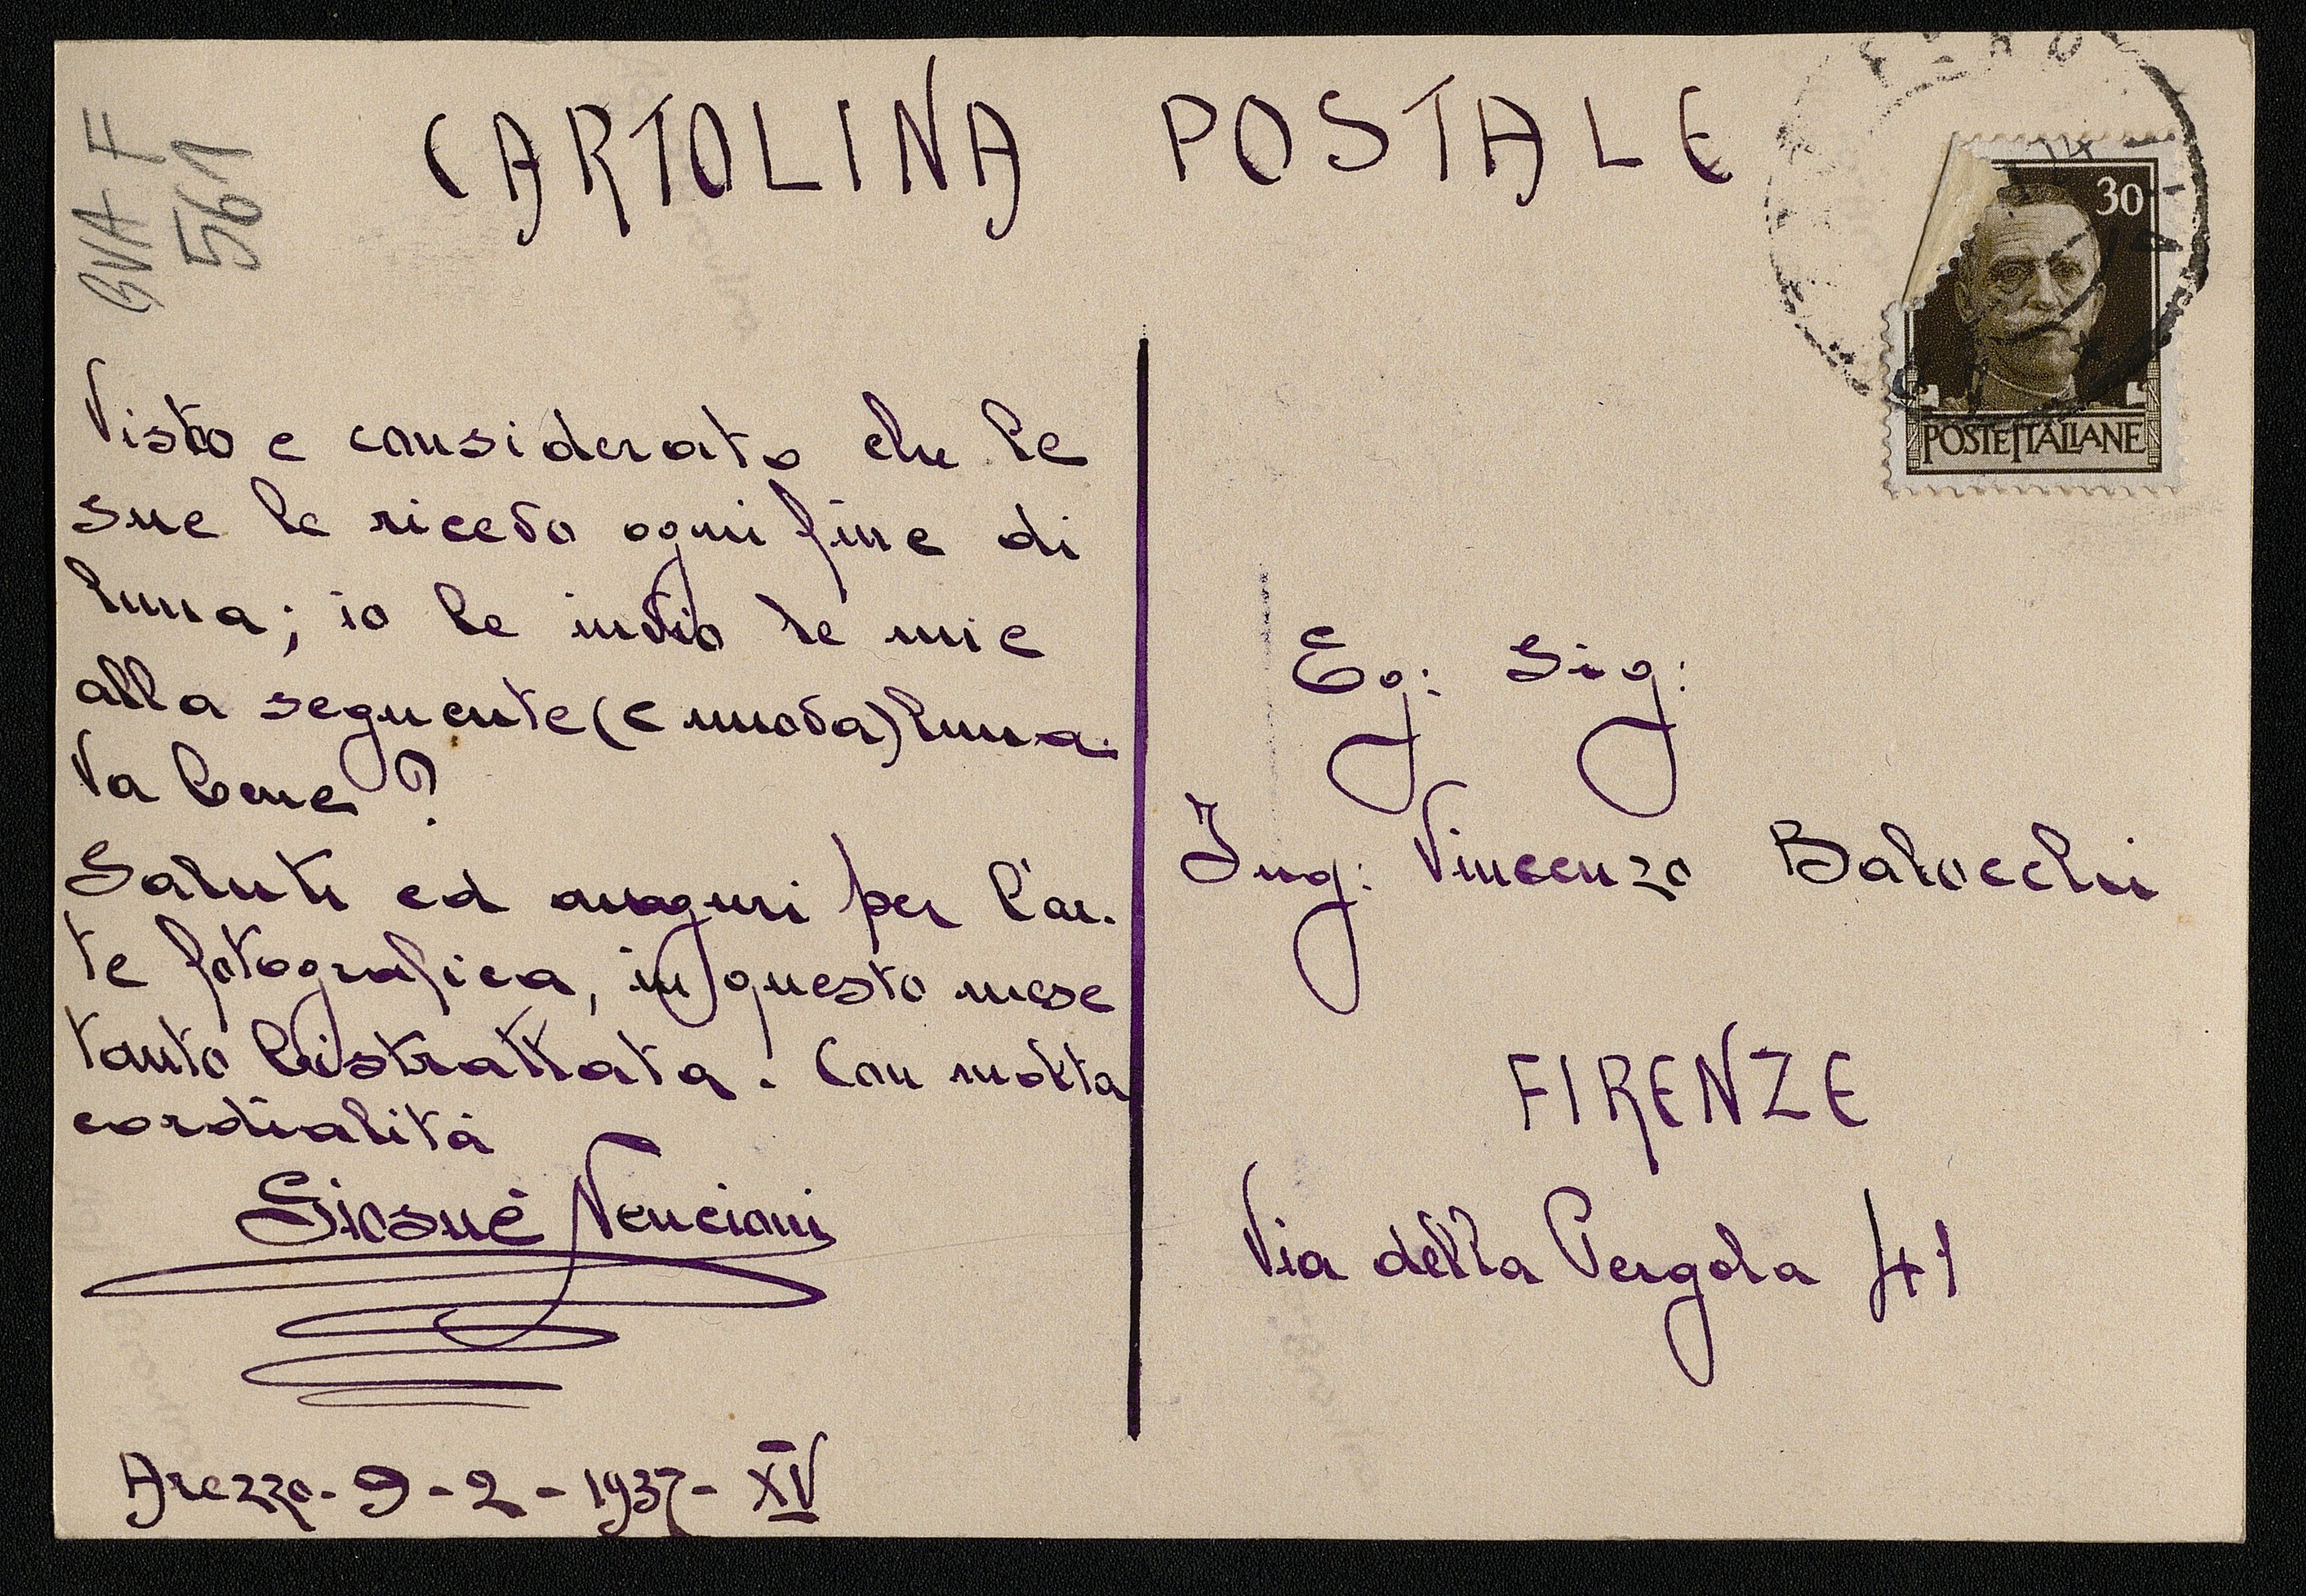 BVA F
561
CARTOLINA POSTALE
30
POSTE ITALIANE
Visto e considerato che le
sue le ricevo ogni fine di
luna; io le invio le mie
alla seguente (e nuova) luna.
Va bene?
Saluti ed auguri per l'ar-
te fotografica, in questo mese
tanto bistrattata. Con molta
cordialità
Giosuè Nencioni
Arezzo - 9 - 2 - 1937 - XV
Eg: Sig:
Ing: Vincenzo Balocchi
FIRENZE
Via della Pergola 41